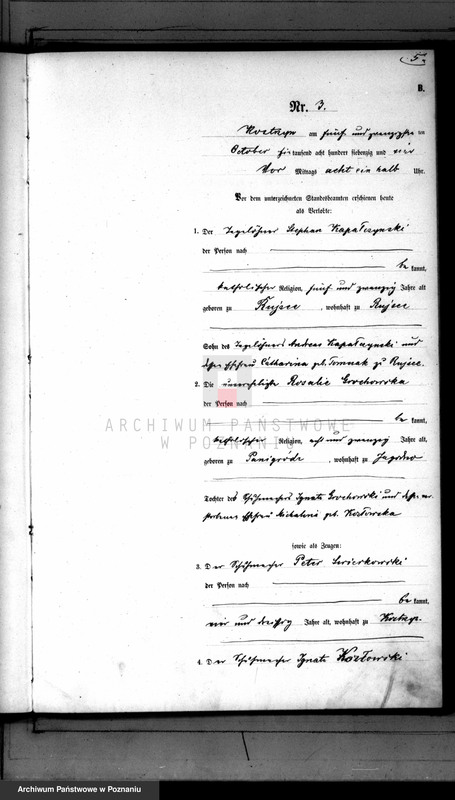 5.
B.
Nr. 3.
Kostrzyn am fünf und zwanzigsten
October eintausend acht hundert siebenzig und vier
Vor Mittags acht ein halb Uhr.
Vor dem unterzeichneten Standesbeamten erschienen heute
als Verlobte:
1. Der Tagelöhner Stephan Kapałczynski
der Person nach
be kannt,
katholischer Religion, fünf und zwanzig Jahre alt
geboren zu , wohnhaft zu
Sohn des Tagelöhners Andreas Kapałczynski und
Ehefrau Catharina geb. Tomnak zu
2. Die unverehelichte Rosalie Grochowska
der Person nach
be kannt,
katholischer Religion, acht und zwanzig Jahre alt,
geboren zu Panigródz , wohnhaft zu
Tochter des Schuhmachers Ignatz Grochowski und
Ehefrau geb. Kozłowska
sowie als Zeugen:
3. Der Schuhmacher Peter Swierkowski
der Person nach
be kannt,
vier und dreißig Jahre alt, wohnhaft zu
4. Der Schuhmacher Ignatz Kozłowski
ARCHIWUM PAŃSTWOWE
W POZNANIU
Archiwum Państwowe w Poznaniu